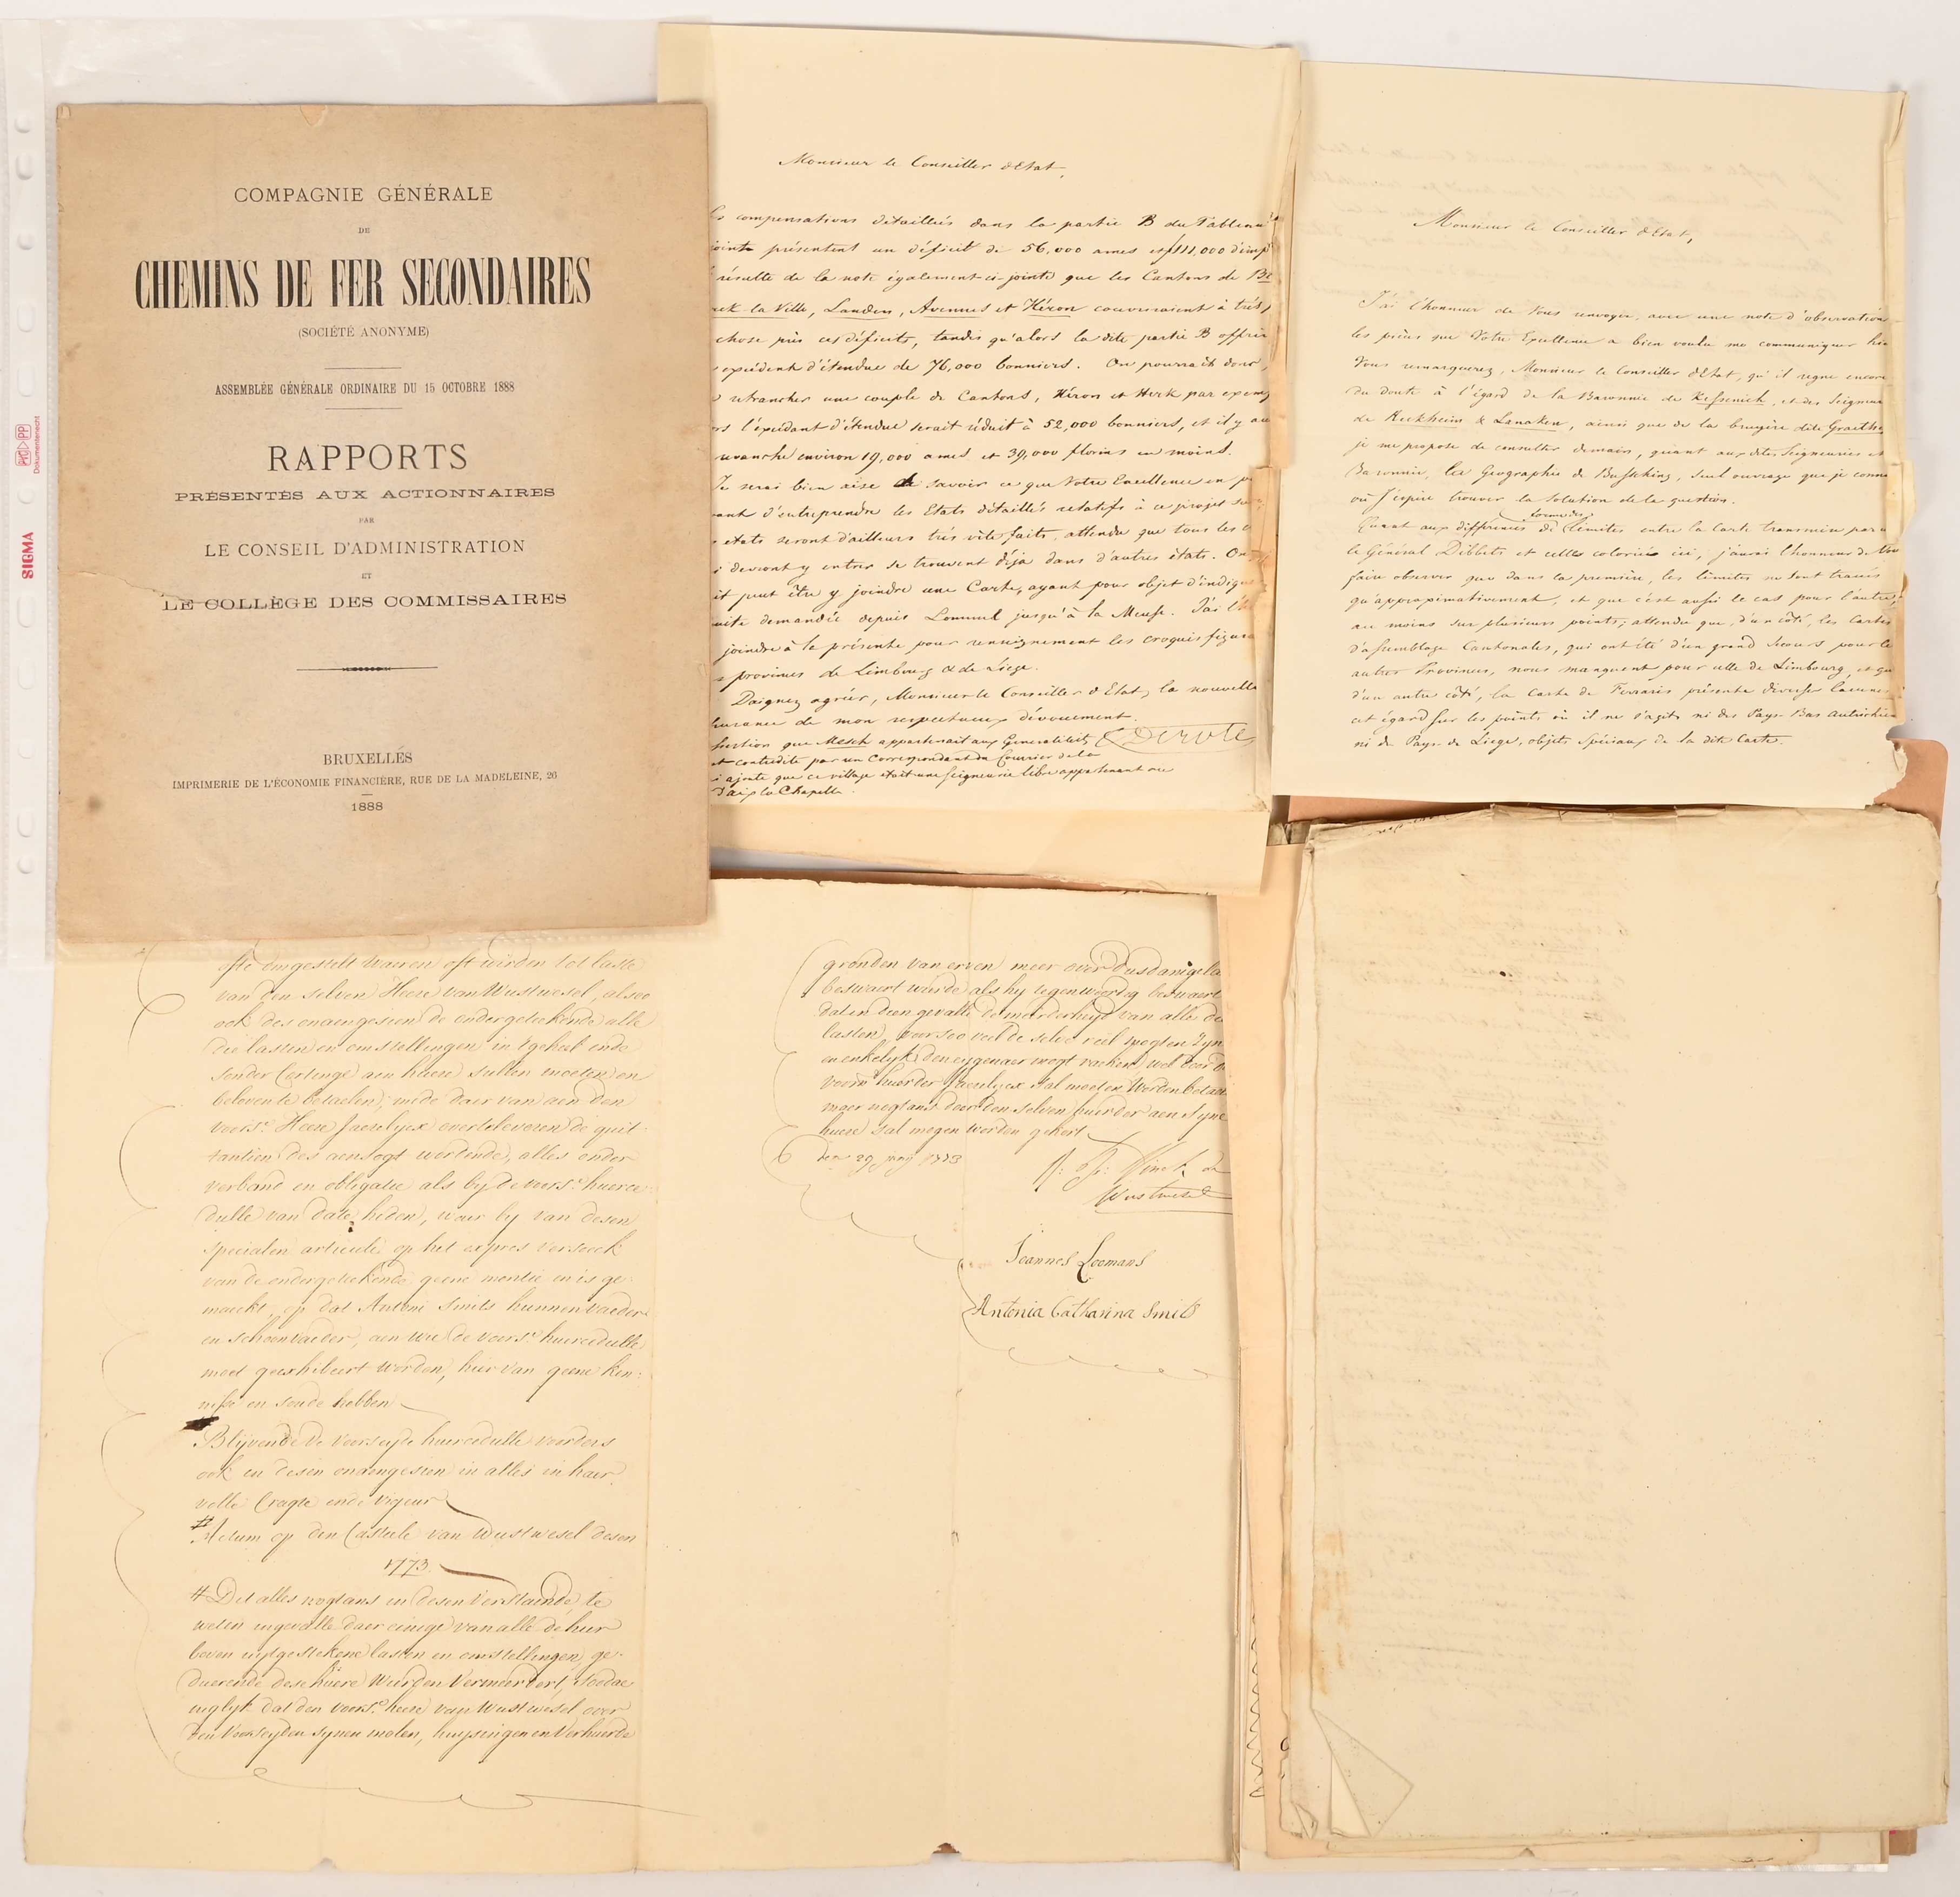 COMPAGNIE GÉNÉRALE
DE
CHEMINS DE FER SECONDAIRES
(SOCIÉTÉ ANONYME)
ASSEMBLÉE GÉNÉRALE ORDINAIRE DU 15 OCTOBRE 1888
RAPPORTS
PRÉSENTÉS AUX ACTIONNAIRES
PAR
LE CONSEIL D'ADMINISTRATION
ET
LE COLLÈGE DES COMMISSAIRES
BRUXELLES
IMPRIMERIE DE L'ÉCONOMIE FINANCIÈRE, RUE DE LA MADELEINE, 26
1888
SIGMA
PP
Dokumentenecht
Monsieur le Conseiller d'Etat,
compensations détaillées dans la partie B du Tableau
présentent un déficit de 56,000 ames et f111,000 d'imp
résulte de la note également ci-jointe que les Cantons de
la Ville, Landen, Avennes et Héron couvriraient à très
chose près ces déficits, tandis qu'alors la dite partie B offrir
excédent d'étendue de 76,000 bonniers. On pourrait donc,
retrancher une couple de Cantons, Héron et Herk par exemp
l'excédant d'étendue serait réduit à 52,000 bonniers, et il y au
environ 19,000 ames et 39,000 florins en moins.
Je serai bien aise de savoir ce que Votre Excellence en
d'entreprendre les Etats détaillés relatifs à ce projet
etats seront d'ailleurs très vite faits, attendu que tous les
devront y entrer se trouvent déja dans d'autres états. On
peut être y joindre une Carte, ayant pour objet d'indiq
demandée depuis Lommel jusqu'à la Meuse. J'ai l'h
joindre à la présente pour renseignement les croquis figur
provinces de Limbourg & de Liège.
Daignez agréer, Monsieur le Conseiller d'Etat, la nouvelle
de mon respectueux dévouement.
que Mesch appartenait aux Generaliteits
contredite par un Correspondant du Courrier de la
ajoute que ce village était une seigneurie libre appartenant au
d'aix la Chapelle.
Monsieur le Conseiller d'Etat,
J'ai l'honneur de Vous renvoyer, avec une note d'observation
les pièces que Votre Excellence a bien voulu me communiquer hie
Vous remarquerez, Monsieur le Conseiller d'Etat, qu'il règne encore
du doute à l'égard de la Baronnie de Kessenich, et des Seigneur
de Reckheim & Lanaken, ainsi que de la bruyère dite Graethe
je me propose de consulter demain, quant aux dites Seigneuries et
Baronnie, la Géographie de Busching, seul ouvrage que je conne
où j'espère trouver la solution de la question.
Quant aux différences de limites entre la Carte transmise par
le Général Dibbets et celles coloriées ici, j'aurai l'honneur de Vou
faire observer que dans la première, les limites ne sont tracées
qu'approximativement, et que c'est aussi le cas pour l'autre,
au moins sur plusieurs points; attendu que, d'un côté, les Cartes
d'assemblage Cantonales, qui ont été d'un grand secours pour le
autres Provinces, nous manquent pour celle de Limbourg, et qu
d'un autre côté, la carte de Ferraris présente diverses lacunes
cet égard sur les points où il ne s'agit ni des Pays-Bas autrichien
ni du Pays de Liège, objets spéciaux de la dite Carte.
ofte omgestelt waeren oft wirden tot laste
van den selven Heere van Wustwesel, alsoo
ook des onaengesien de ondergetekende alle
die lasten en omstellingen in t geheel ende
sonder cortinge aen huere sullen moeten
betaelen, mede daer van aen den
voors. Heere Jaerelyckx overteleveren de quit-
tantien des aensogt wordende, alles onder
verband en obligatie als by de voors. huerce-
dulle van date heden, waer by van desen
specialen articule op het expres versoeck
van de ondergetekende geene mentie en is ge-
maeckt, op dat Antoni Smits hunnen vaeder
en schoonvaeder, aen wie de voors. huercedulle
moet geexhibeert worden, hier van geene ken-
nisse en soude hebben
Blijvende de voorseyde huercedulle voorders
ook in desen onaengesien in alles in haer
volle cragte ende vigeur
Actum op den Casteele van Wustwesel desen
1773
# Dit alles nogtans in desen verstaende, te
weten ingevalle daer einige van alle de hier
boven uytgestekene lasten en omstellingen, ge-
duerende dese huere wirden vermeerdert,
dat den voors. heere van Wustwesel over
den voorseyden synen molen, huysingen en verhuerde
gronden van erven meer over dusdanige la
beswaert wirde als hy tegenwoordig beswaert
dat in dien gevalle de meerderheyd van alle de
lasten, voor soo veel de selve reël mogten zyn
en enkelyk den eygenaer mogt raeken wel door d
voorn. huerder Jaerelyckx sal moeten worden betaelt
maer nogtans door den selven huerder aen syne
huere sal mogen worden gekort
den 29 juny 1773
Wustwesel
Joannes Loomans
Antonia Catharina Smits